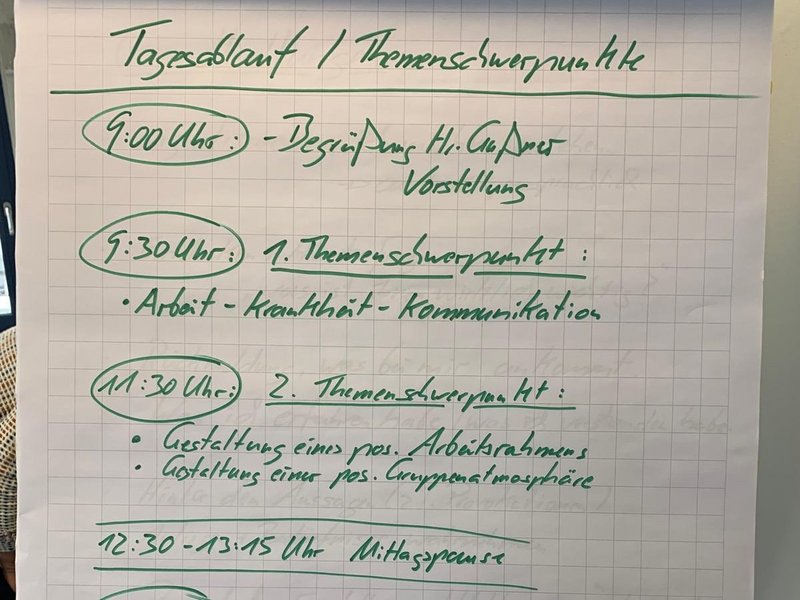 Tagesablauf / Themenschwerpunkte
9:00 Uhr: - Begrüßung Hr. Gußner
Vorstellung
9:30 Uhr: 1. Themenschwerpunkt:
• Arbeit - Krankheit - Kommunikation
11:30 Uhr: 2. Themenschwerpunkt:
• Gestaltung eines pos. Arbeitsrahmens
• Gestaltung einer pos. Gruppenatmosphäre
12:30 - 13:15 Uhr Mittagspause